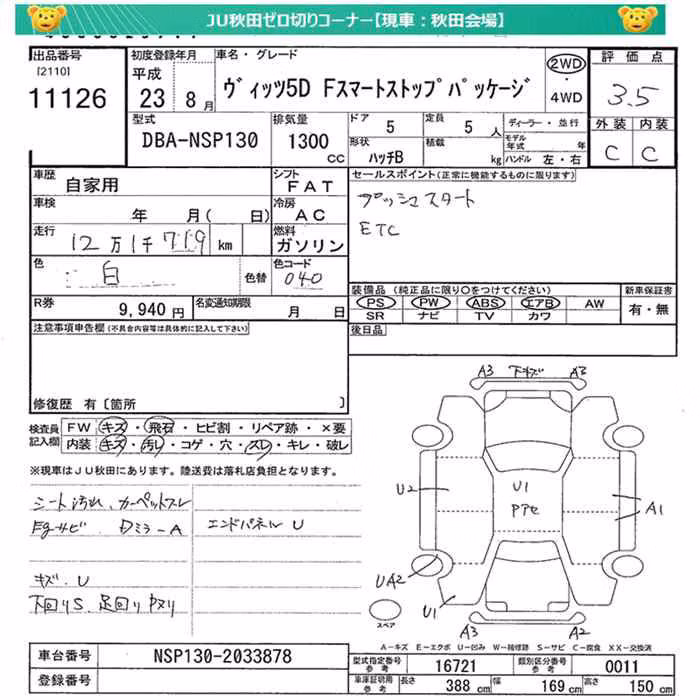 JU秋田ゼロ切りコーナー【現車：秋田会場】
出品番号
[2110]
11126
初度登録年月
平成
23年8月
車名・グレード
ヴィッツ5D Fスマートストップパッケージ
2WD
・
4WD
評価点
3.5
外装 内装
C C
型式
DBA-NSP130
排気量
1300
CC
ドア 5
形状 ハッチB
定員 5 人
積載 kg
ディーラー・並行
モデル年式 年
ハンドル 左・右
車歴
自家用
シフト
FAT
車検
年 月( 日)
冷房
AC
走行
12万1千719 km
燃料
ガソリン
色
白
色替
色コード
040
R券
9,940円
名変通知期限
月 日
セールスポイント(正常に機能するものに限ります)
プッシュスタート
ETC
装備品 (純正品に限り○をつけてください)
PS PW ABS エアB AW
SR ナビ TV カワ
新車保証書
有・無
後日品
注意事項申告欄(不具合内容等は具体的に記入して下さい)
修復歴 有〔箇所 〕
検査員記入欄
FW キズ・飛石・ヒビ割・リペア跡・×要
内装 キズ・汚レ・コゲ・穴・スレ・キレ・破レ
※現車はJU秋田にあります。陸送費は落札店負担となります。
シート汚れ、カーペットスレ
Egサビ Dミラ-A エンドパネルU
キズ、U
下回りS、足回りサビ
A3 下キズ A3
U2
U1
A1
UA2
U1
スペア
A3 A2
A-キズ E-エクボ U-凹み W-補修跡 S-サビ C-腐食 XX-交換済
車台番号
NSP130-2033878
登録番号
型式指定番号 参考
16721
類別区分番号 参考
0011
車庫証明用 参考
長さ 388 cm
幅 169 cm
高さ 150 cm